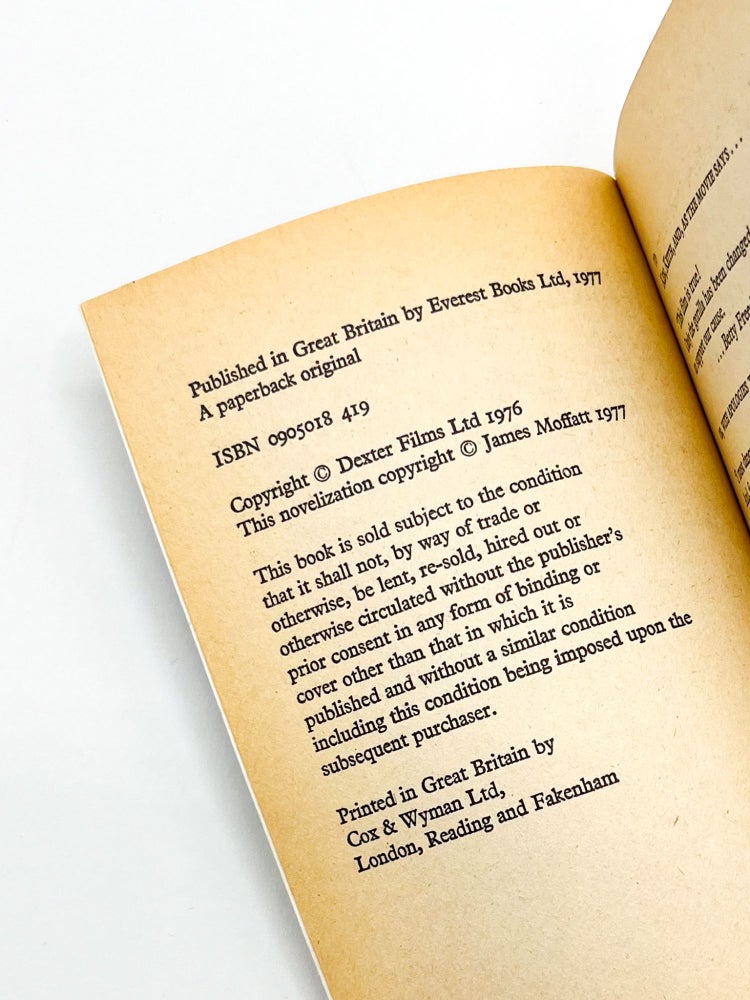 Published in Great Britain by Everest Books Ltd, 1977
A paperback original
ISBN 0905018 419
Copyright © Dexter Films Ltd 1976
This novelization copyright © James Moffatt 1977
This book is sold subject to the condition
that it shall not, by way of trade or
otherwise, be lent, re-sold, hired out or
otherwise circulated without the publisher's
prior consent in any form of binding or
cover other than that in which it is
published and without a similar condition
including this condition being imposed upon the
subsequent purchaser.
Printed in Great Britain by
Cox & Wyman Ltd,
London, Reading and Fakenham
AND, AS THE MOVIE SAYS . . .
is true!
gorilla has been changed
support our cause.
. . . Betty
WITH APOLOGIES